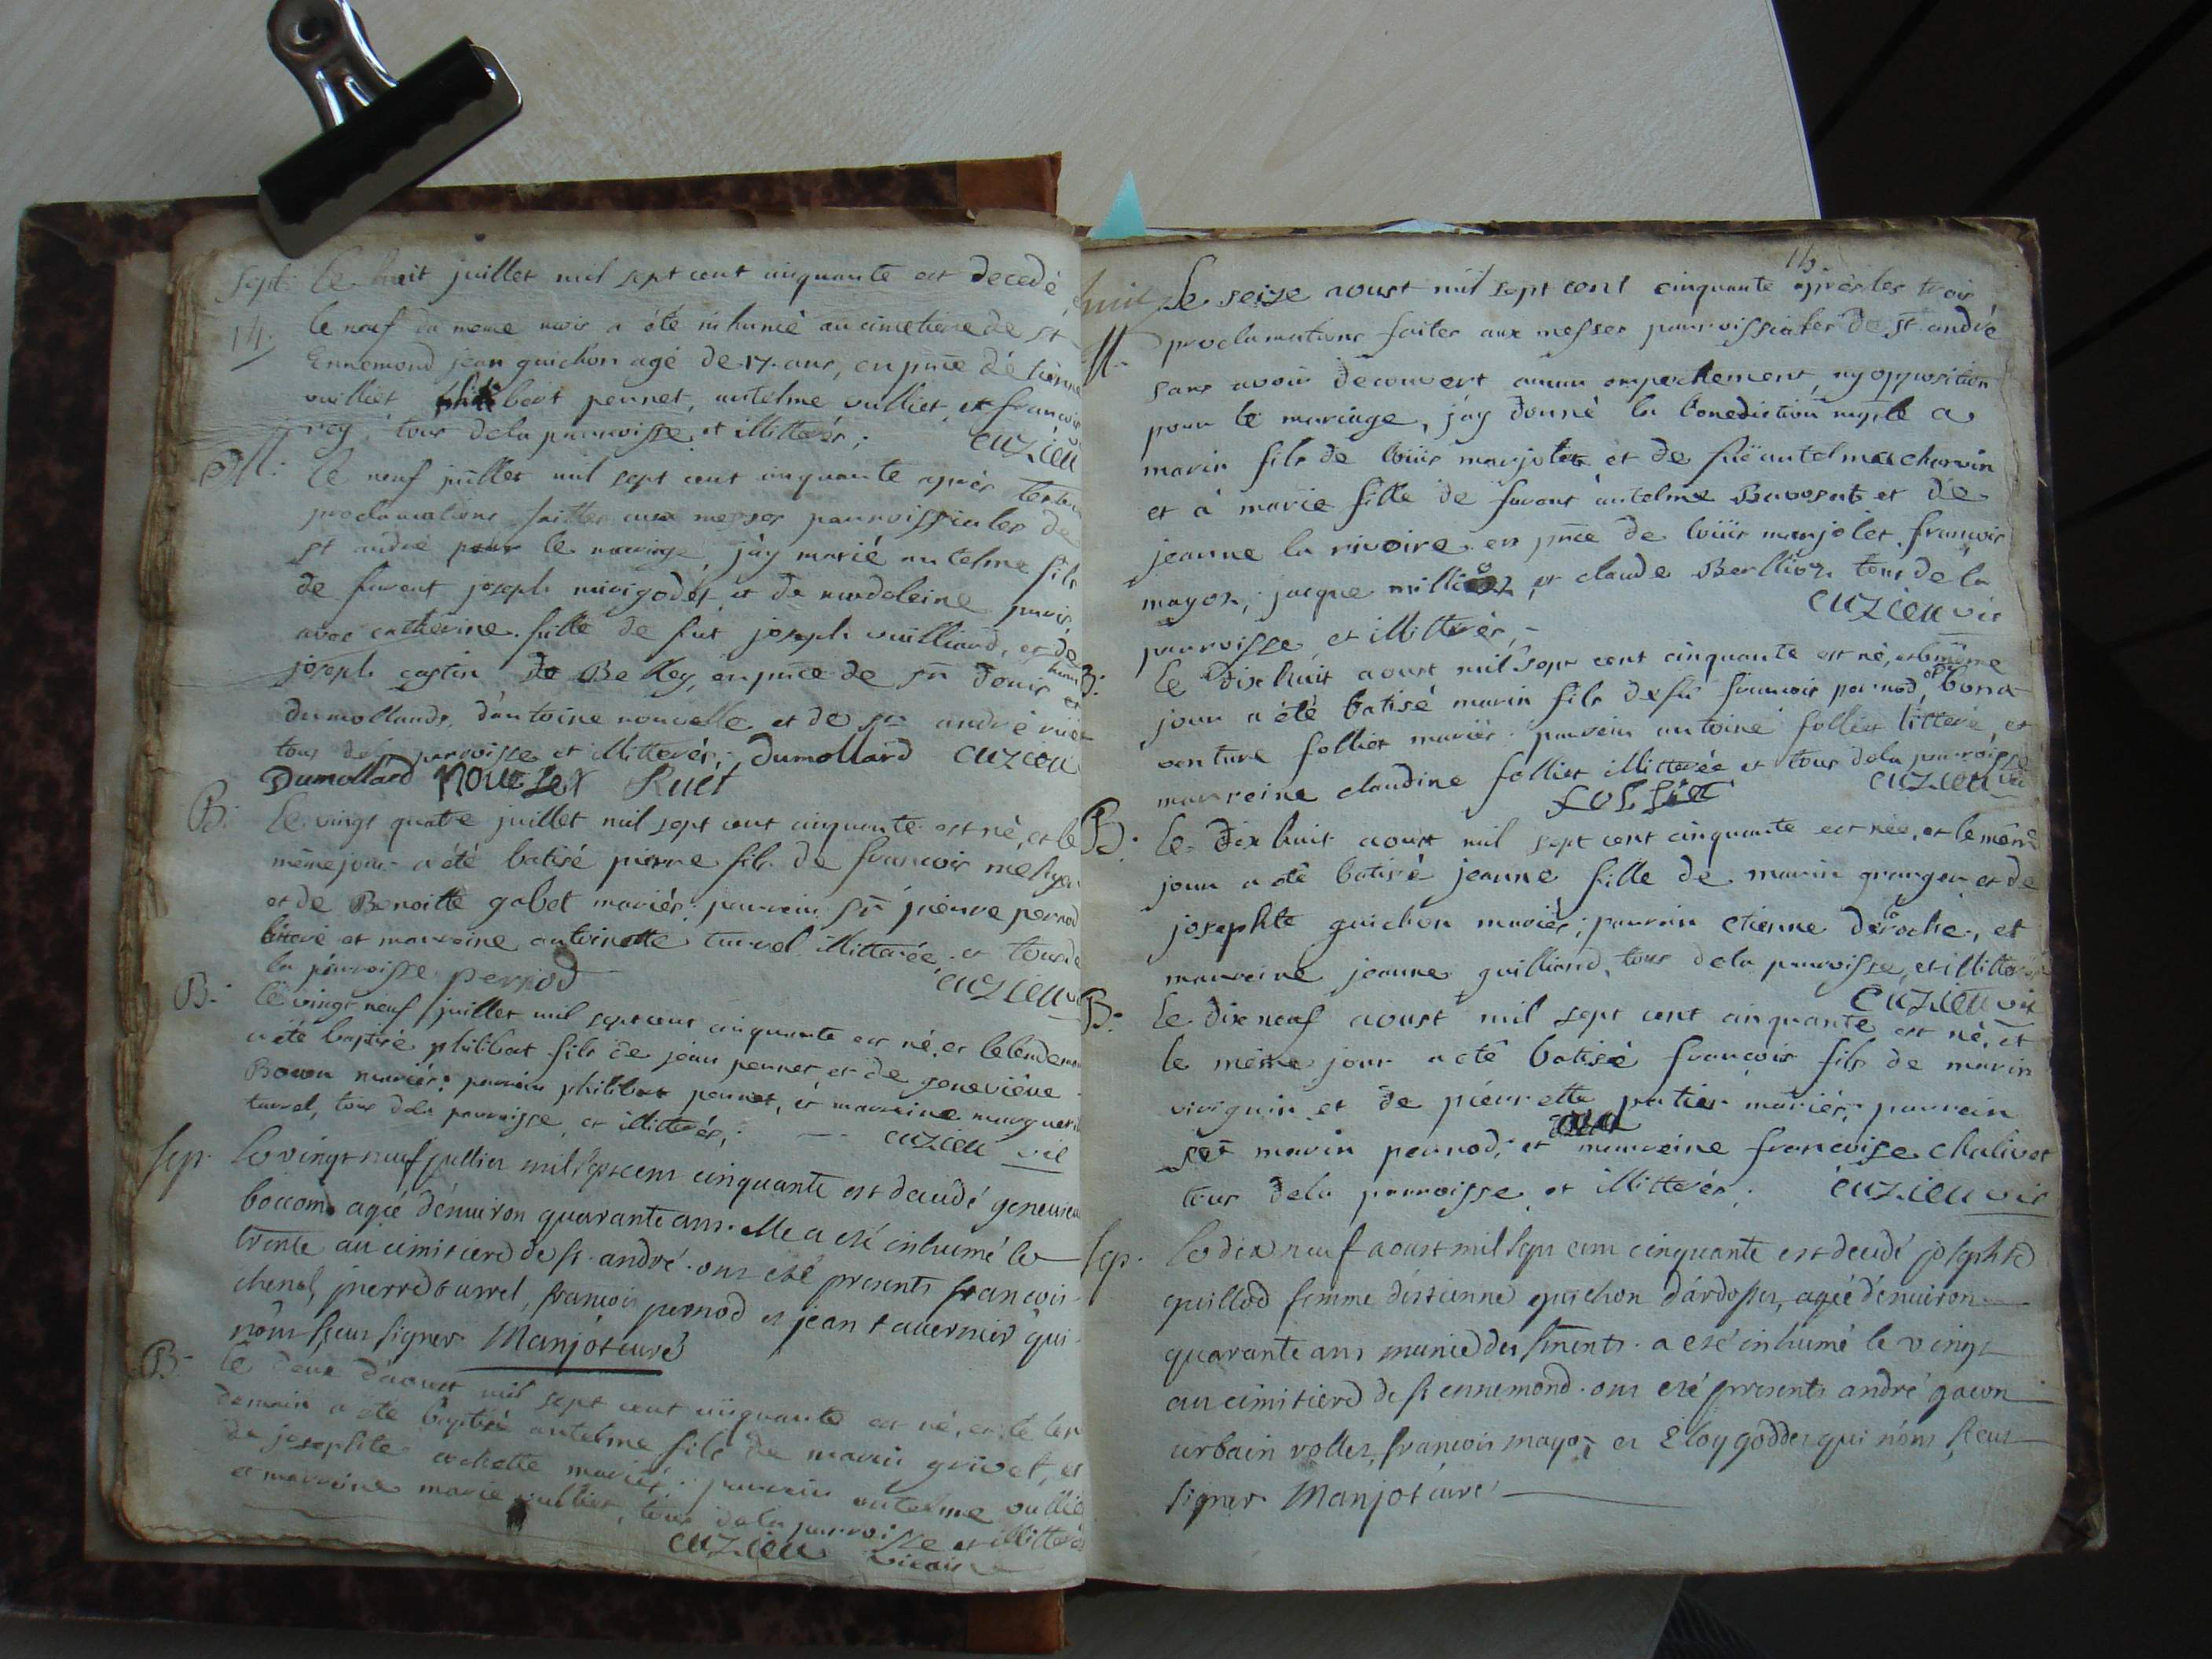 Sept: le huit juillet mil sept cent cinquante est decedé
14. le neuf du meme mois a été inhumé au cimetiere de st
Ennemond jean guichon agé de 17. ans, en pnce de
vulliet, philibert pernet, antelme vulliet, et francois
rey, tous dela parroisse et illitterés; cuzieu
M: le neuf juillet mil sept cent cinquante après
proclamations faittes aux messes parroissiales de
st andré pour le mariage, j'ay marié antelme fils
de furent joseph marigodet et de madeleine
avec catherine fille de fut joseph vuilliard, et de
joseph gastin de Belley, en pnce de sr
dumollards, d'antoine nouvelle et de sr andré ruet
tous dela parroisse et illitterés; Dumollard cuzieu
Dumollard Ruet
B: le vingt quatre juillet mil sept cent cinquante est né, et le
même jour a été batisé pierre fils de francois
et de Benoitte gobet mariés; parrein sr pierre pernod
litteré et marreine antoinette turrel illitterée et tous de
la parroisse pernod cuzieu
B: le vingt neuf juillet mil sept cent cinquante est né, et le lendemain
a été baptisé philibert fils de jean pernet, et de geneviève
mariés; parrein philibert pernet, et marreine
turrel, tous dela parroisse, et illitterés; cuzieu vic
Sep. Le vingt neuf juillet mil sept cens cinquante est decedé
agée d'environ quarante ans. elle a eté inhumé le
trente au cimitiere de st. andré. ont eté presents francois
chenel, pierre turrel, francois pernod et jean tavernier qui
n'ont sceu signer Manjot curé
B: le deux d'aoust mil sept cent cinquante est né, et le len
demain a été baptisé antelme fils de marin grivet, et
de josephte mariés; parrein antelme vulliet
et marreine marie vulliet, tous dela parroisse et illitterés
cuzieu vicaire
15.
Le seize aoust mil sept cent cinquante après les trois
M. proclamations faites aux messes parroissiales de st andré
sans avoir decouvert aucun empechement, ny opposition
pour le mariage, j'ay donné la benediction a
marin fils de louis manjolet et de antelma charvin
et à marie fille de furent antelme Bavosat et de
jeanne la rivoire en pnce de louis manjolet francois
mayoz, jacque et claude Berlioz tous de la
parroisse, et illitterés; cuzieu vic
B: le dix huit aoust mil sept cent cinquante est né, et le même
jour a été batisé marin fils de francois pernod, et bona
venture folliet mariés; parrein antoine folliet litteré, et
marreine claudine folliet illitterée et tous dela parroisse
folliet cuzieu vic
B: le dix huit aoust mil sept cent cinquante est née, et le même
jour a été batisé jeanne fille de marin granger et de
josephte guichon mariés; parrein etienne deroche, et
marreine jeanne guilliand, tous dela parroisse, et illitterés
cuzieu vic
B: le dix neuf aoust mil sept cent cinquante est né, et
le même jour a été batisé francois fils de marin
viviguin et de pierrette patier mariés; parrein
marin pernod, et marreine francoise chalivet
tous dela parroisse, et illitterés; cuzieu vic
Sep. Le dix neuf aoust mil sept cens cinquante est decedé josephte
guillod femme d'estienne guichon d'ardosset, agée d'environ
quarante ans munie des sments. a eté inhumé le vingt
au cimitiere de st ennemond. ont eté presents andré gacon
urbain vollet, francois mayoz et Eloy goddet qui n'ont sceu
signer Manjot curé